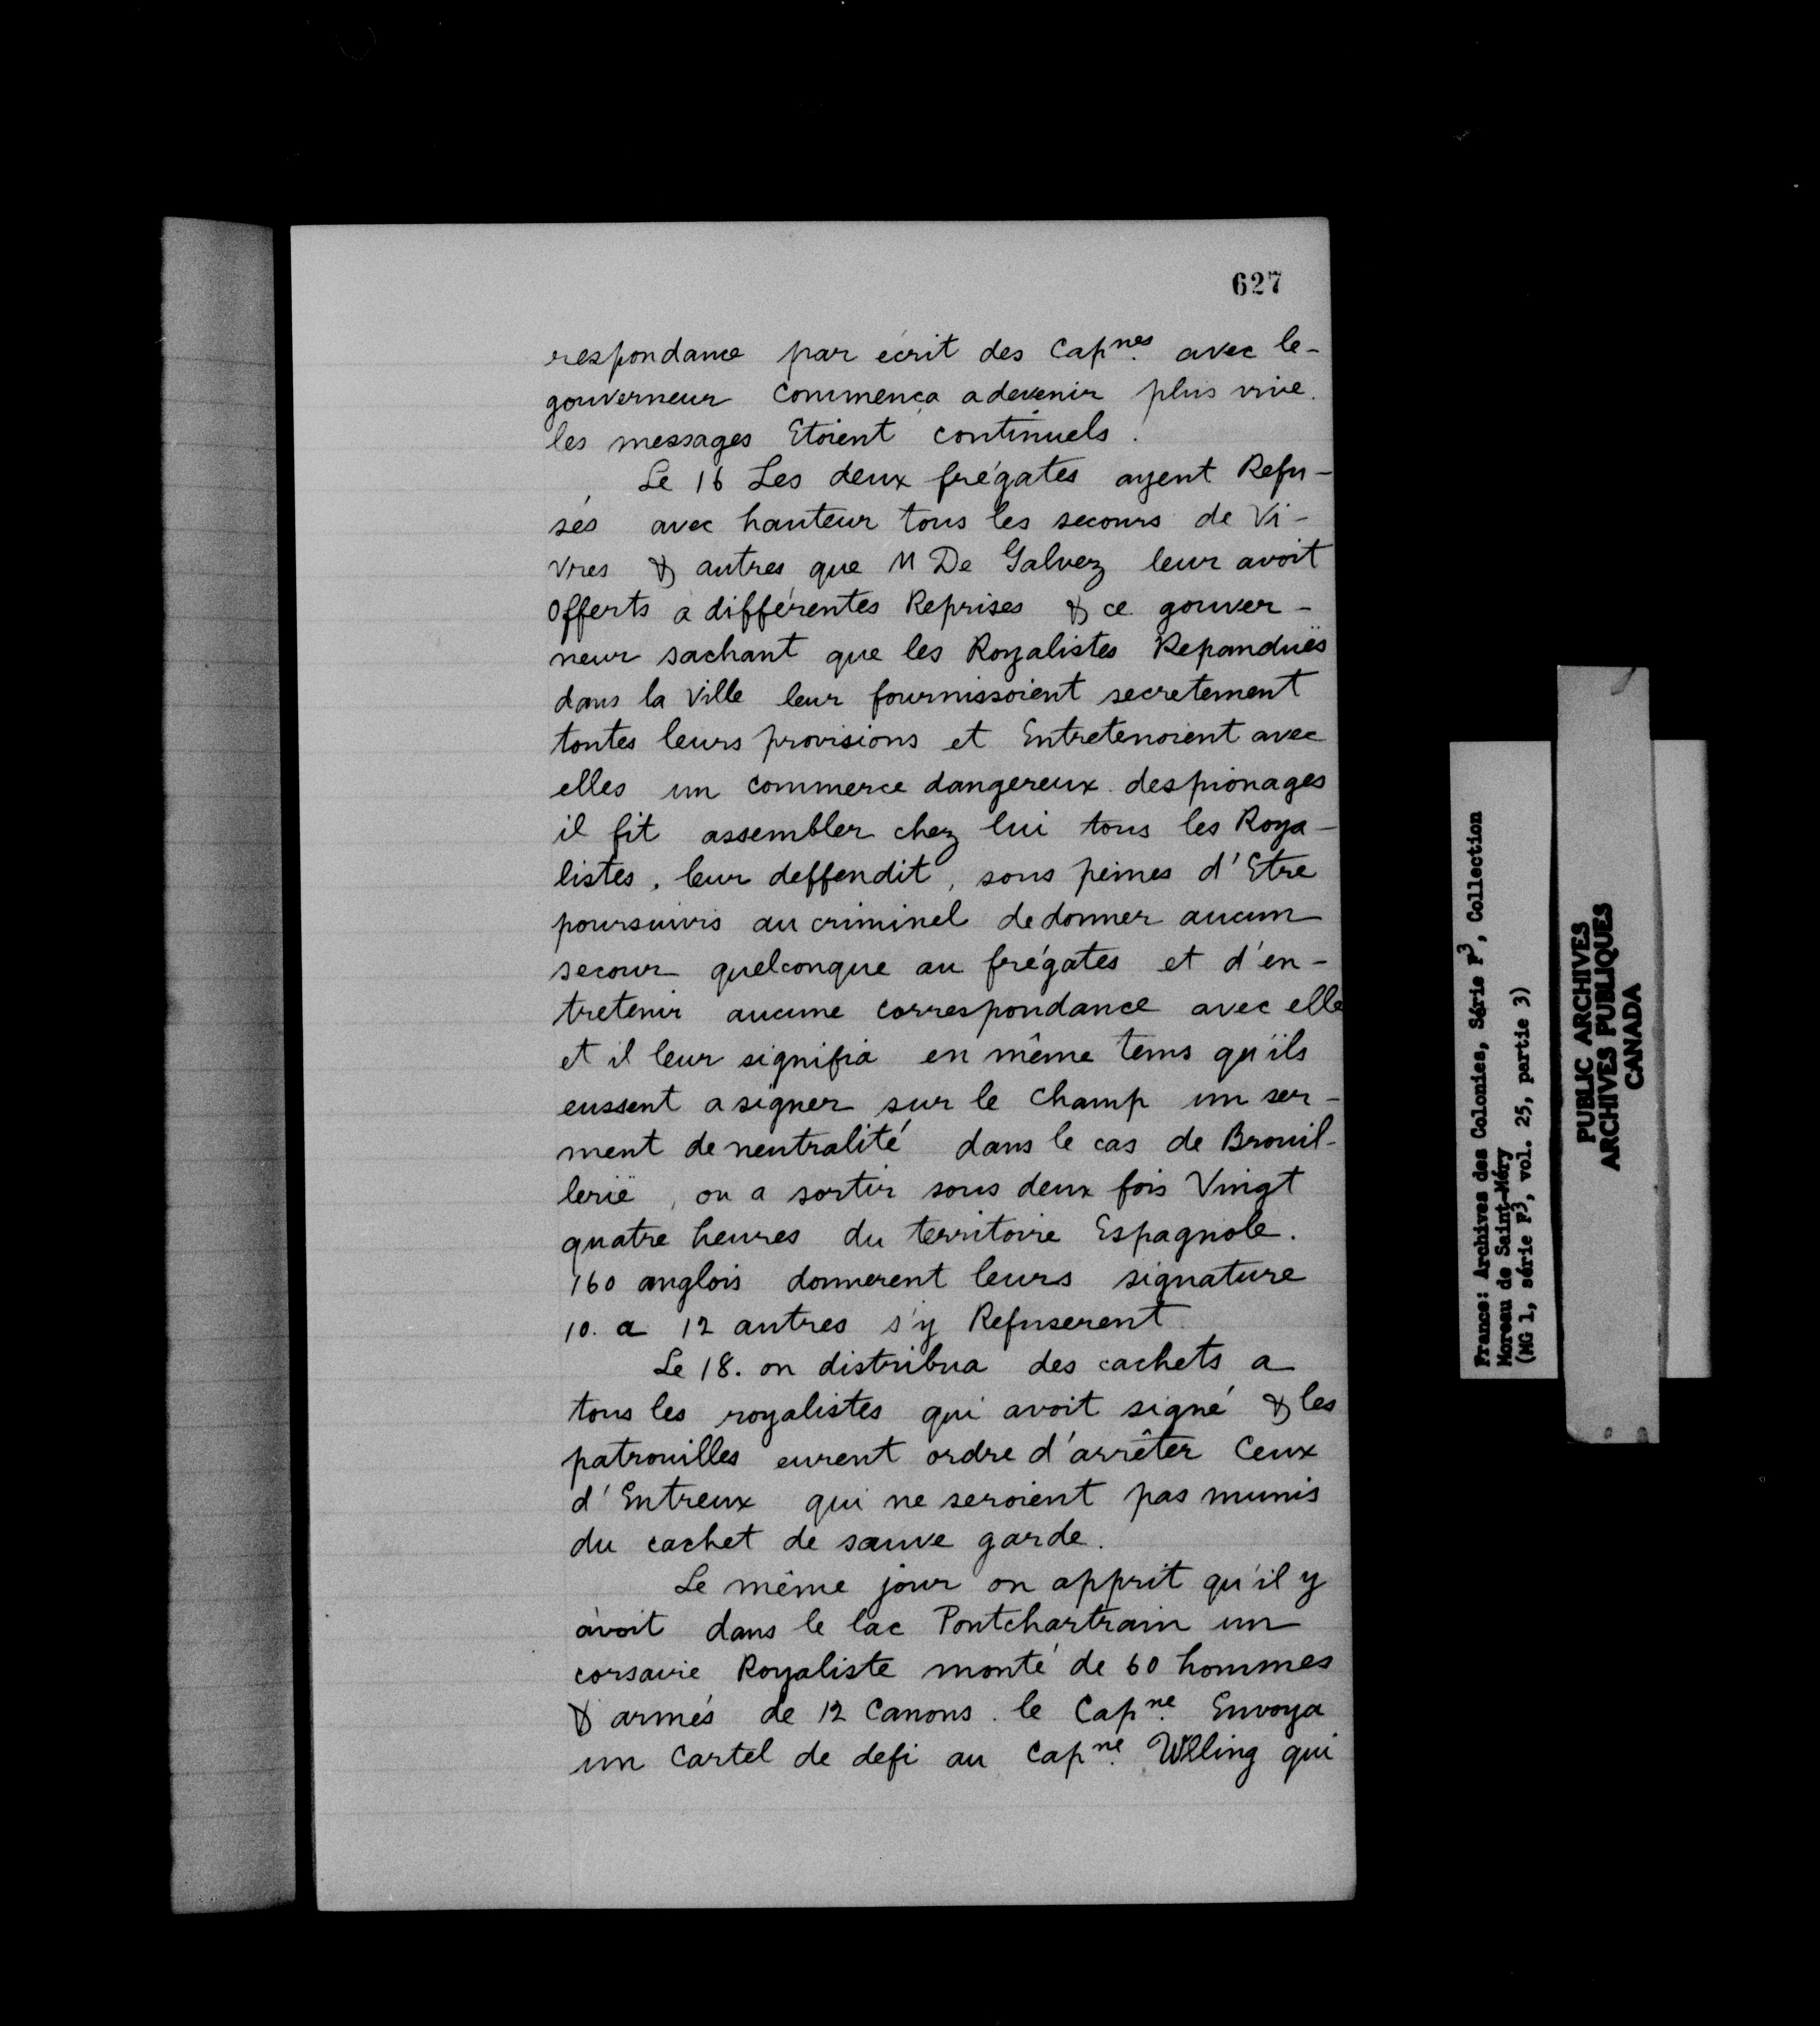 627
respondance par écrit des Capnes. avec le-
gouverneur Commença adevenir plus vive.
les messages Etoient continuels.
Le 16 Les deux frégates ayent Refu-
sés avec hauteur tous les secours de Vi-
vres & autres que M De Galvez leur avoit
Offerts à différentes Reprises & ce gouver-
neur sachant que les Royalistes Repanduës
dans la Ville leur fournissoient secretement
toutes leurs provisions et Entretenoient avec
elles un commerce dangereux despionages
il fit assembler chez lui tous les Roya-
listes, leur deffendit, sous peines d'Etre
poursuivis au criminel dedonner aucun
secour quelconque au frégates et d'en-
tretenir aucune correspondance avec elle
et il leur signifia en même tems qu'ils
eussent a signer sur le Champ un ser-
ment de neutralité dans le cas de Brouil-
lerië, ou a sortir sous deux fois Vingt
quatre heures du territoire Espagnole.
160 anglois donnerent leurs signature
10. a 12 autres s'y Refuserent
Le 18. on distribua des cachets a
tous les royalistes qui avoit signé & les
patrouilles eurent ordre d'arrêter Ceux
d'Entreux qui ne seroient pas munis
du cachet de sauve garde.
Le même jour on apprit qu'il y
avoit dans le lac Pontchartrain un
corsaire Royaliste monté de 60 hommes
& armés de 12 Canons. le Capne. Envoya
un Cartel de defi au Capne. Willing qui
France: Archives des Colonies, Série F3, Collection
Moreau de Saint-Méry
(MG 1, série F3, vol. 25, partie 3)
PUBLIC ARCHIVES
ARCHIVES PUBLIQUES
CANADA